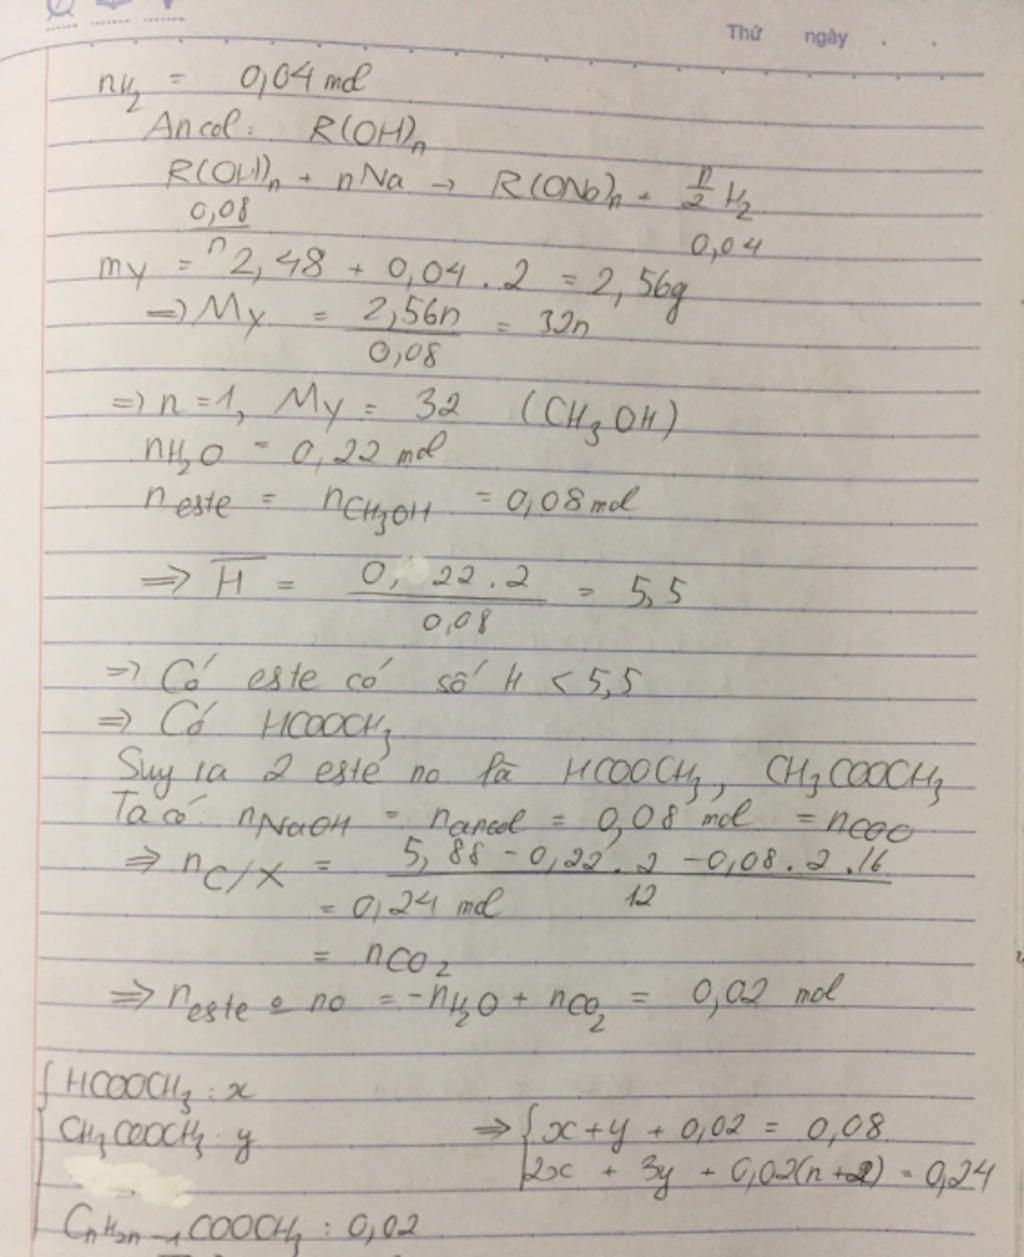 Thứ ngày . .
nH₂ = 0,04 mol
Ancol: R(OH)n
R(OH)n + nNa → R(ONa)n + n/2 H₂
0,08/n 0,04
mY = 2,48 + 0,04 . 2 = 2,56g
=> MY = 2,56n/0,08 = 32n
=> n = 1, MY = 32 (CH₃OH)
nH₂O = 0,22 mol
n este = nCH₃OH = 0,08 mol
=> H̅ = 0,22 . 2/0,08 = 5,5
=> Có este có số H < 5,5
=> Có HCOOCH₃
Suy ra 2 este no là HCOOCH₃, CH₃COOCH₃
Ta có nNaOH = nancol = 0,08 mol = nCOO
=> nC/X = 5,88 - 0,22 . 2 - 0,08 . 2 . 16/12
= 0,24 mol
= nCO₂
=> n este no = -nH₂O + nCO₂ = 0,02 mol
{ HCOOCH₃ : x
CH₃COOCH₃ : y => { x + y + 0,02 = 0,08
2x + 3y + 0,02(n+2) = 0,24
CnH2n-1COOCH₃ : 0,02